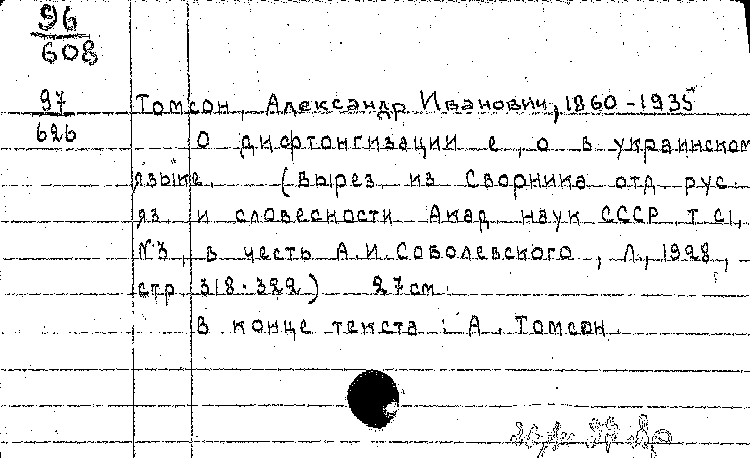 96
608
97
626
Томсон, Александр Иванович, 1860-1935
О дифтонгизации е, о в украинском
языке. (Вырез. из Сборника отд. рус.
яз. и словесности Акад. наук СССР, т. CI,
№3, в честь А.И.Соболевского, Л., 1928,
стр. 318-322) 27см.
В конце текста: А. Томсон.